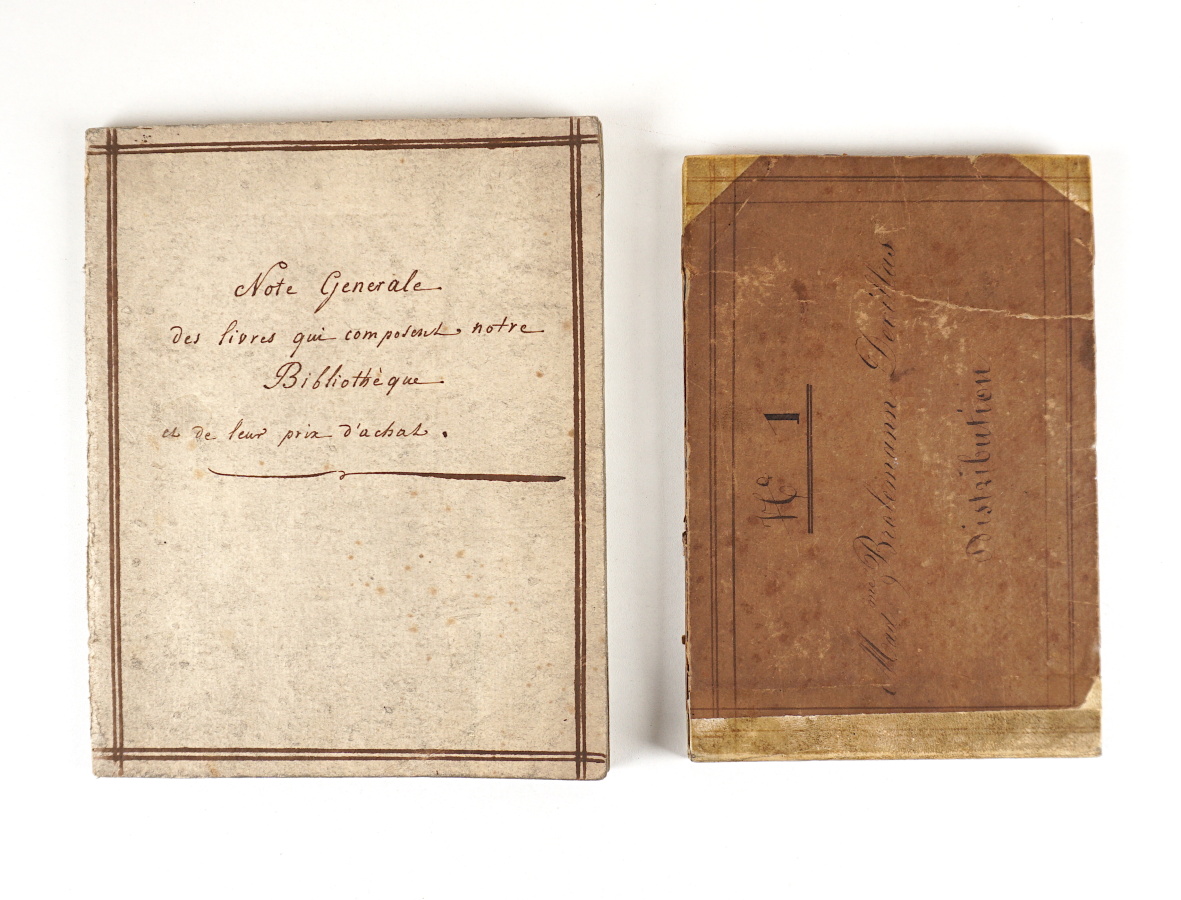 Note Generale
des livres qui composent notre
Bibliothèque
et de leur prix d'achat.
N° 1
Distribution